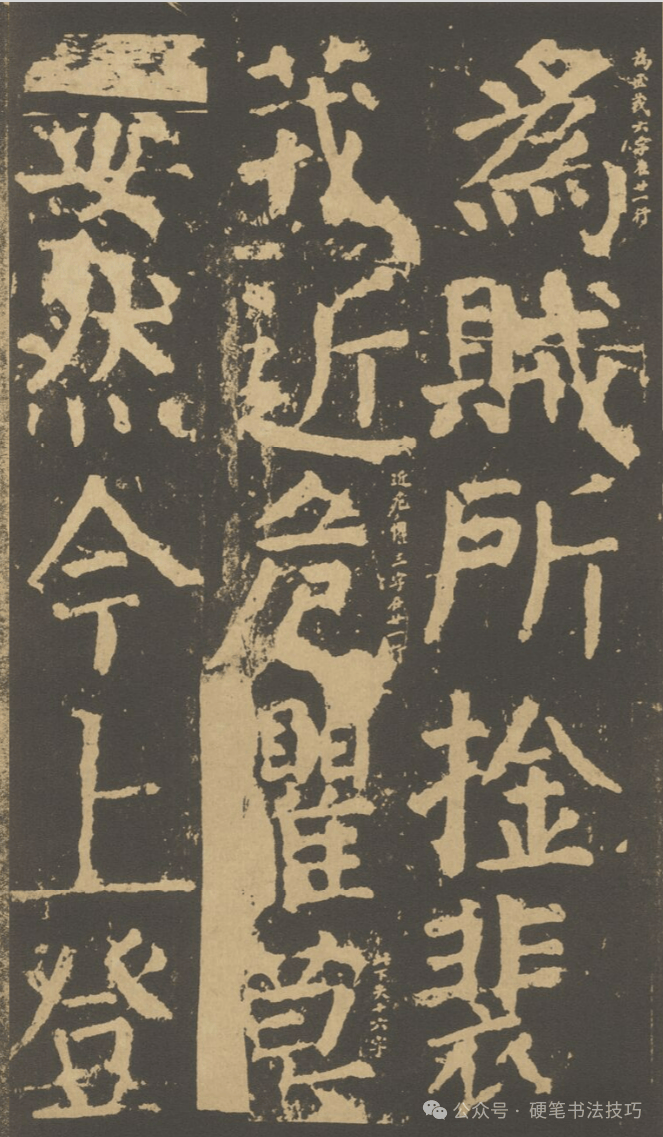 為至茙六字在廿一行
為賊所捦裴
茙近危瞿
近危懼三字在廿一行
下欠十六字
晏然今上登
公众号 · 硬笔书法技巧